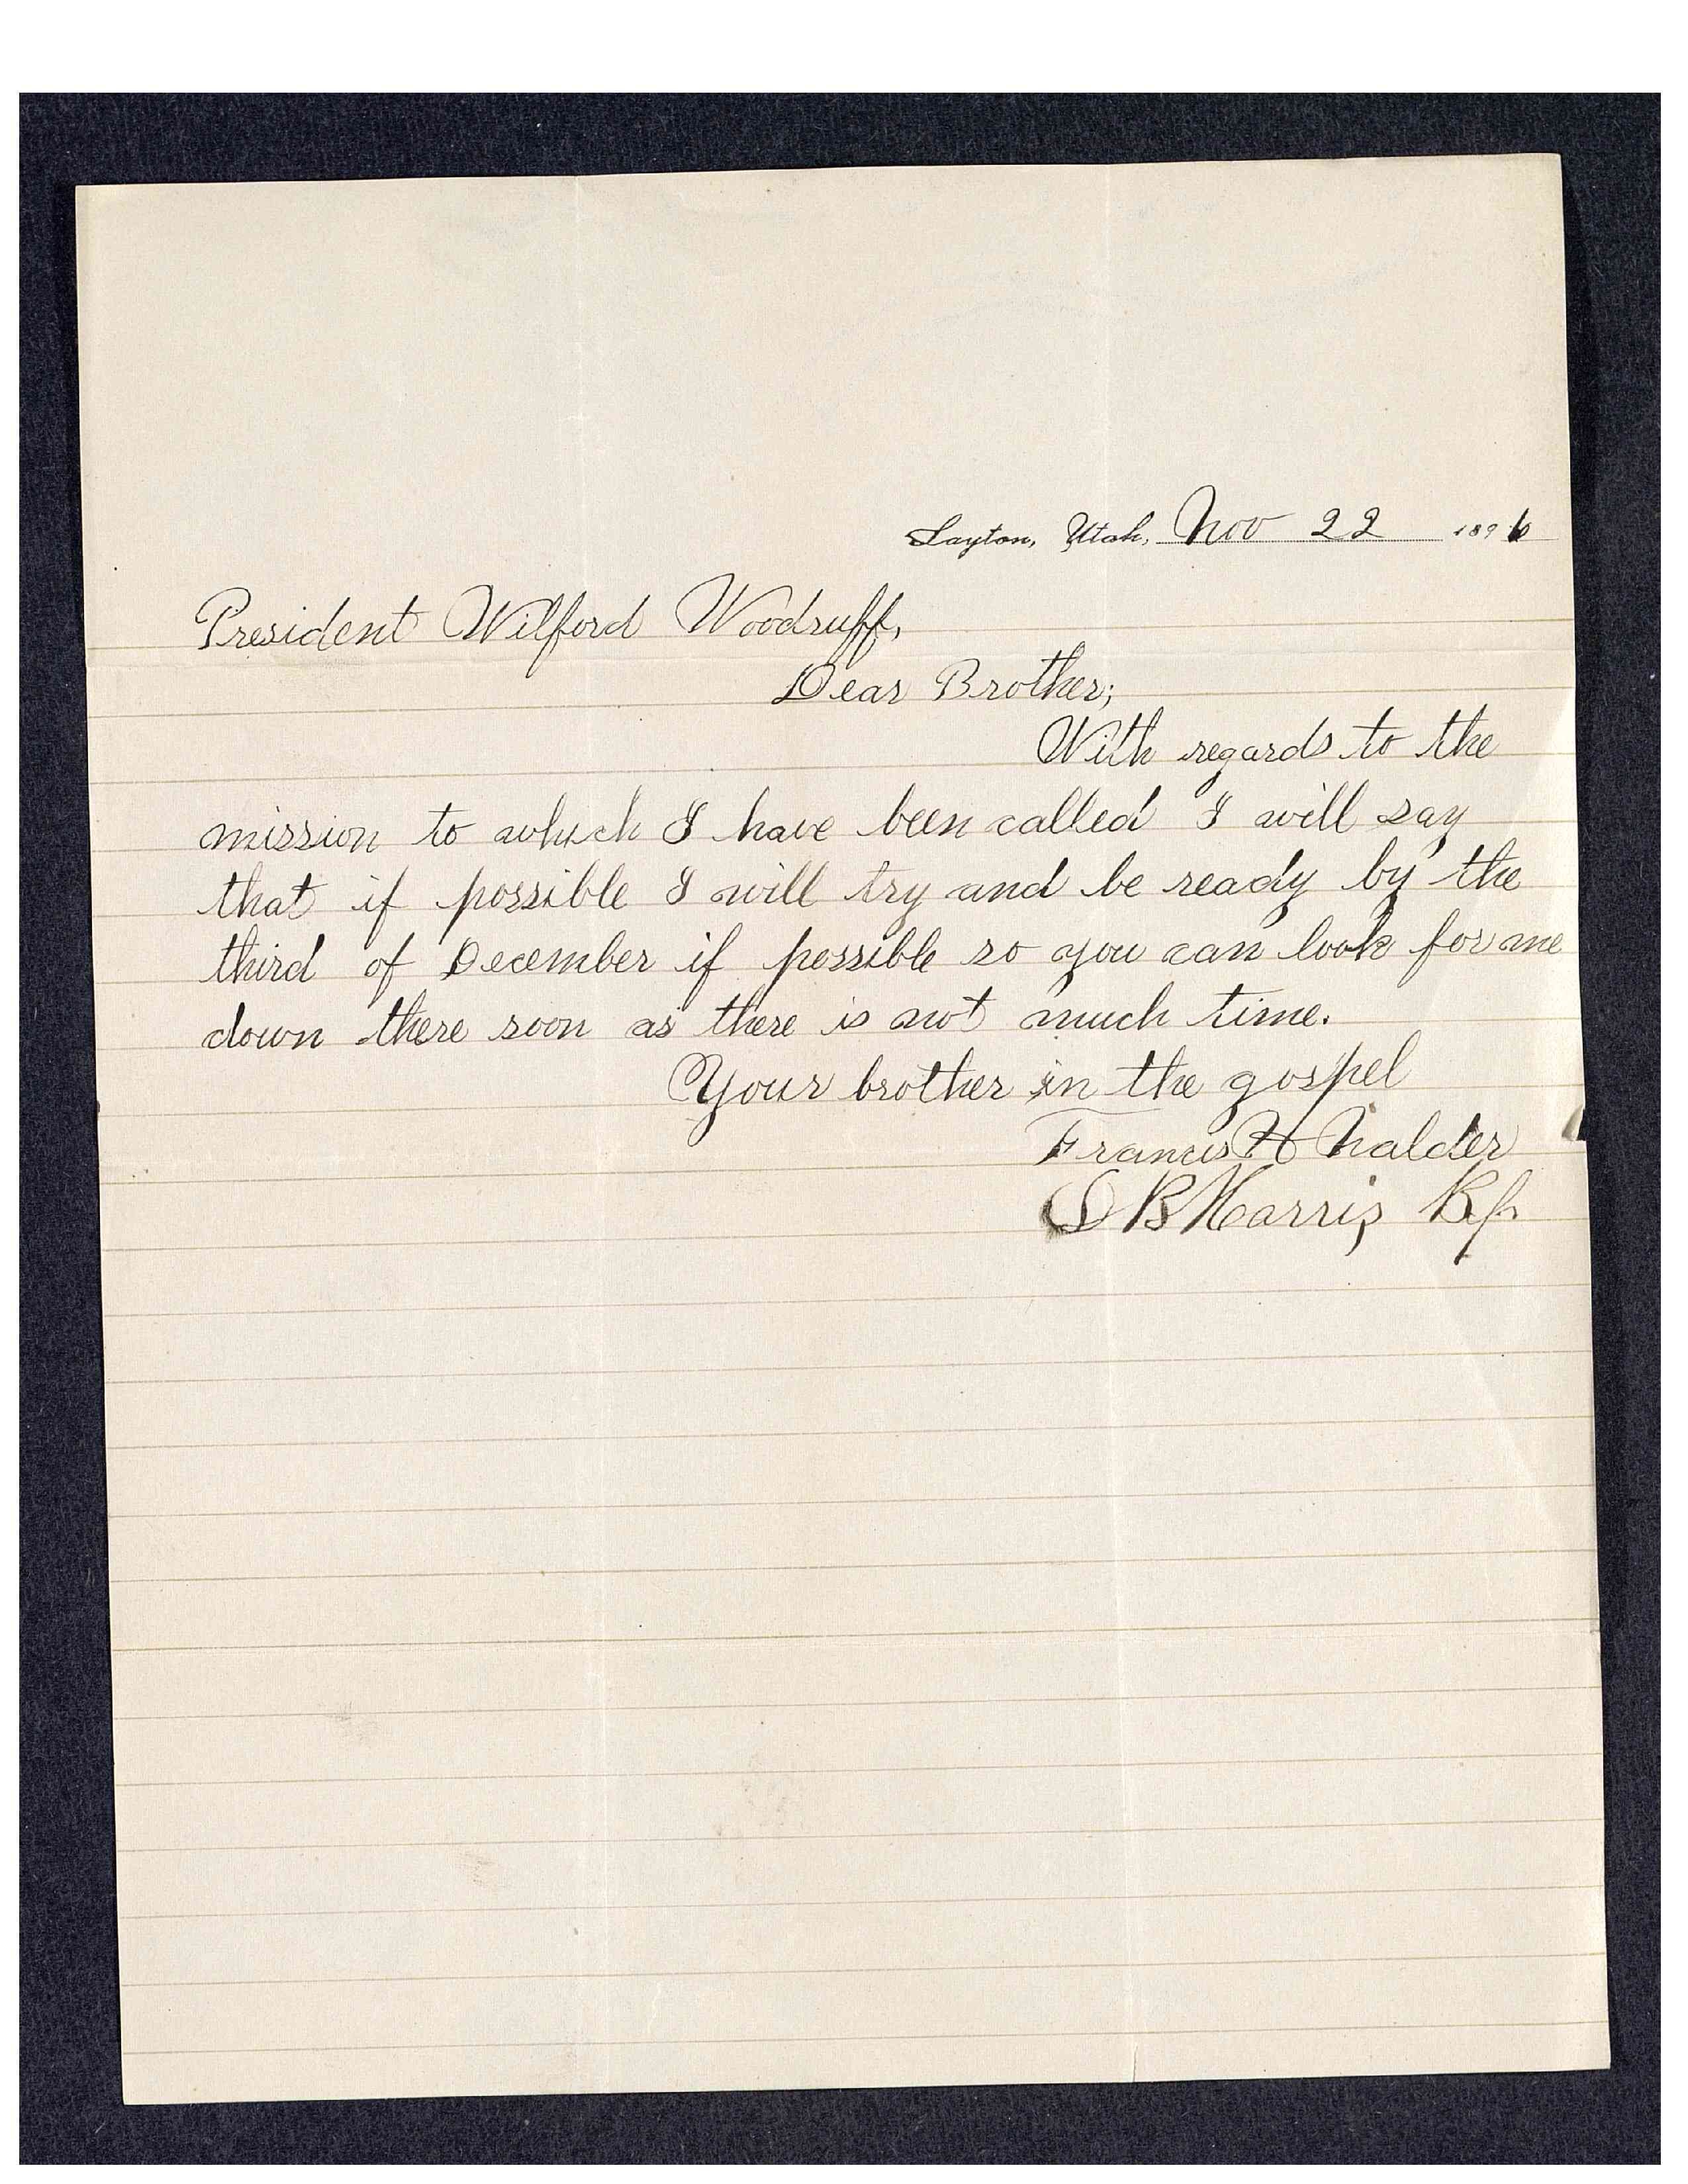 Layton, Utah, Nov 22 1896
President Wilford Woodruff,
Dear Brother;
With regards to the
mission to which I have been called I will say
that if possible I will try and be ready by the
third of December if possible so you can look for me
down there soon as there is not much time.
Your brother in the gospel
Francis H Nalder
D B Harris Bp